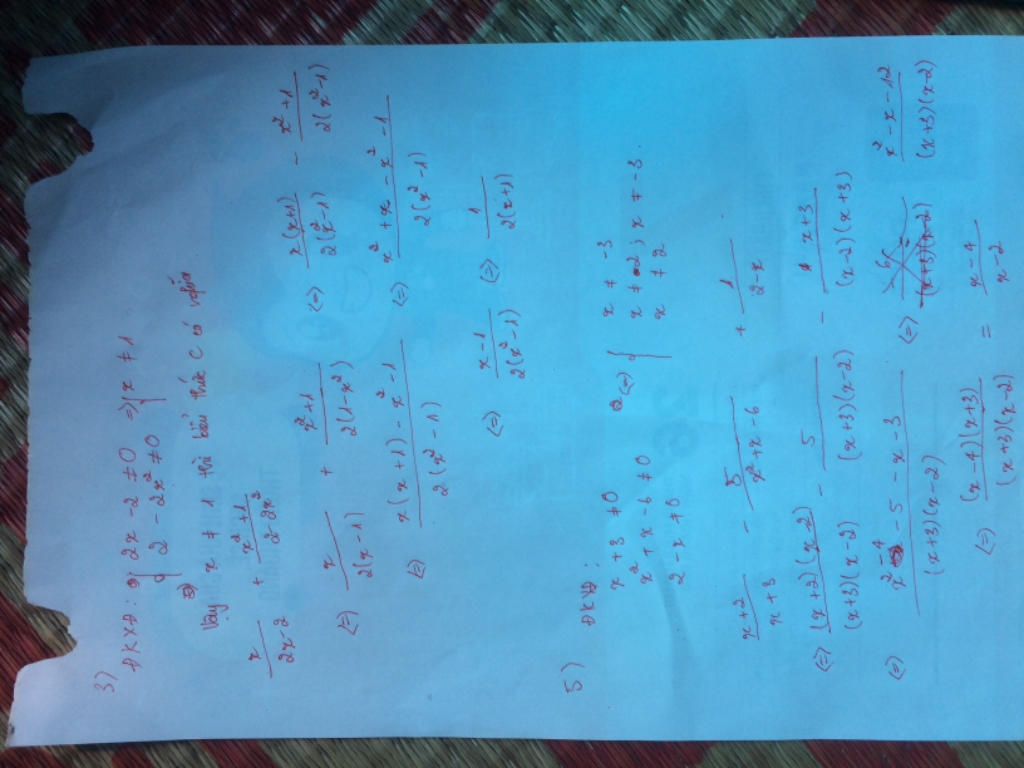 3)
ĐKXĐ: { 2x - 2 ≠ 0 => { x ≠ 1
2 - 2x² ≠ 0
Vậy x ≠ 1 thì biểu thức C có nghĩa
x/(2x-2) + (x²+1)/(2-2x²)
(=) x/(2(x-1)) + (x²+1)/(2(1-x²)) (=) x(x+1)/(2(x²-1)) - (x²+1)/(2(x²-1))
(=) (x(x+1) - x² - 1)/(2(x²-1)) (=) (x² + x - x² - 1)/(2(x²-1))
(=) (x-1)/(2(x²-1)) (=) 1/(2(x+1))
5)
ĐKXĐ:
x + 3 ≠ 0 (=) { x ≠ -3
x² + x - 6 ≠ 0 x ≠ 2; x ≠ -3.
2 - x ≠ 0 x ≠ 2
(x+2)/(x+3) - 5/(x²+x-6) + 1/(2-x)
(=) (x+2)(x-2)/((x+3)(x-2)) - 5/((x+3)(x-2)) - (x+3)/((x-2)(x+3))
(=) (x² - 4 - 5 - x - 3)/((x+3)(x-2)) (=) (x² - x - 12)/((x+3)(x-2))
(=) (x-4)(x+3)/((x+3)(x-2)) = (x-4)/(x-2)